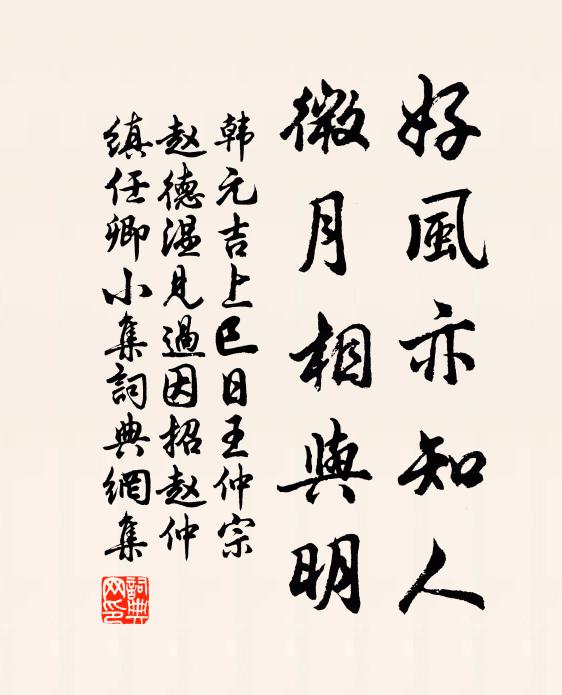 好風亦知人
微月相與明
韩元吉上巳日王仲宗
赵德温见過因招赵仲
缜任卿小集詞典網集
詞典网印